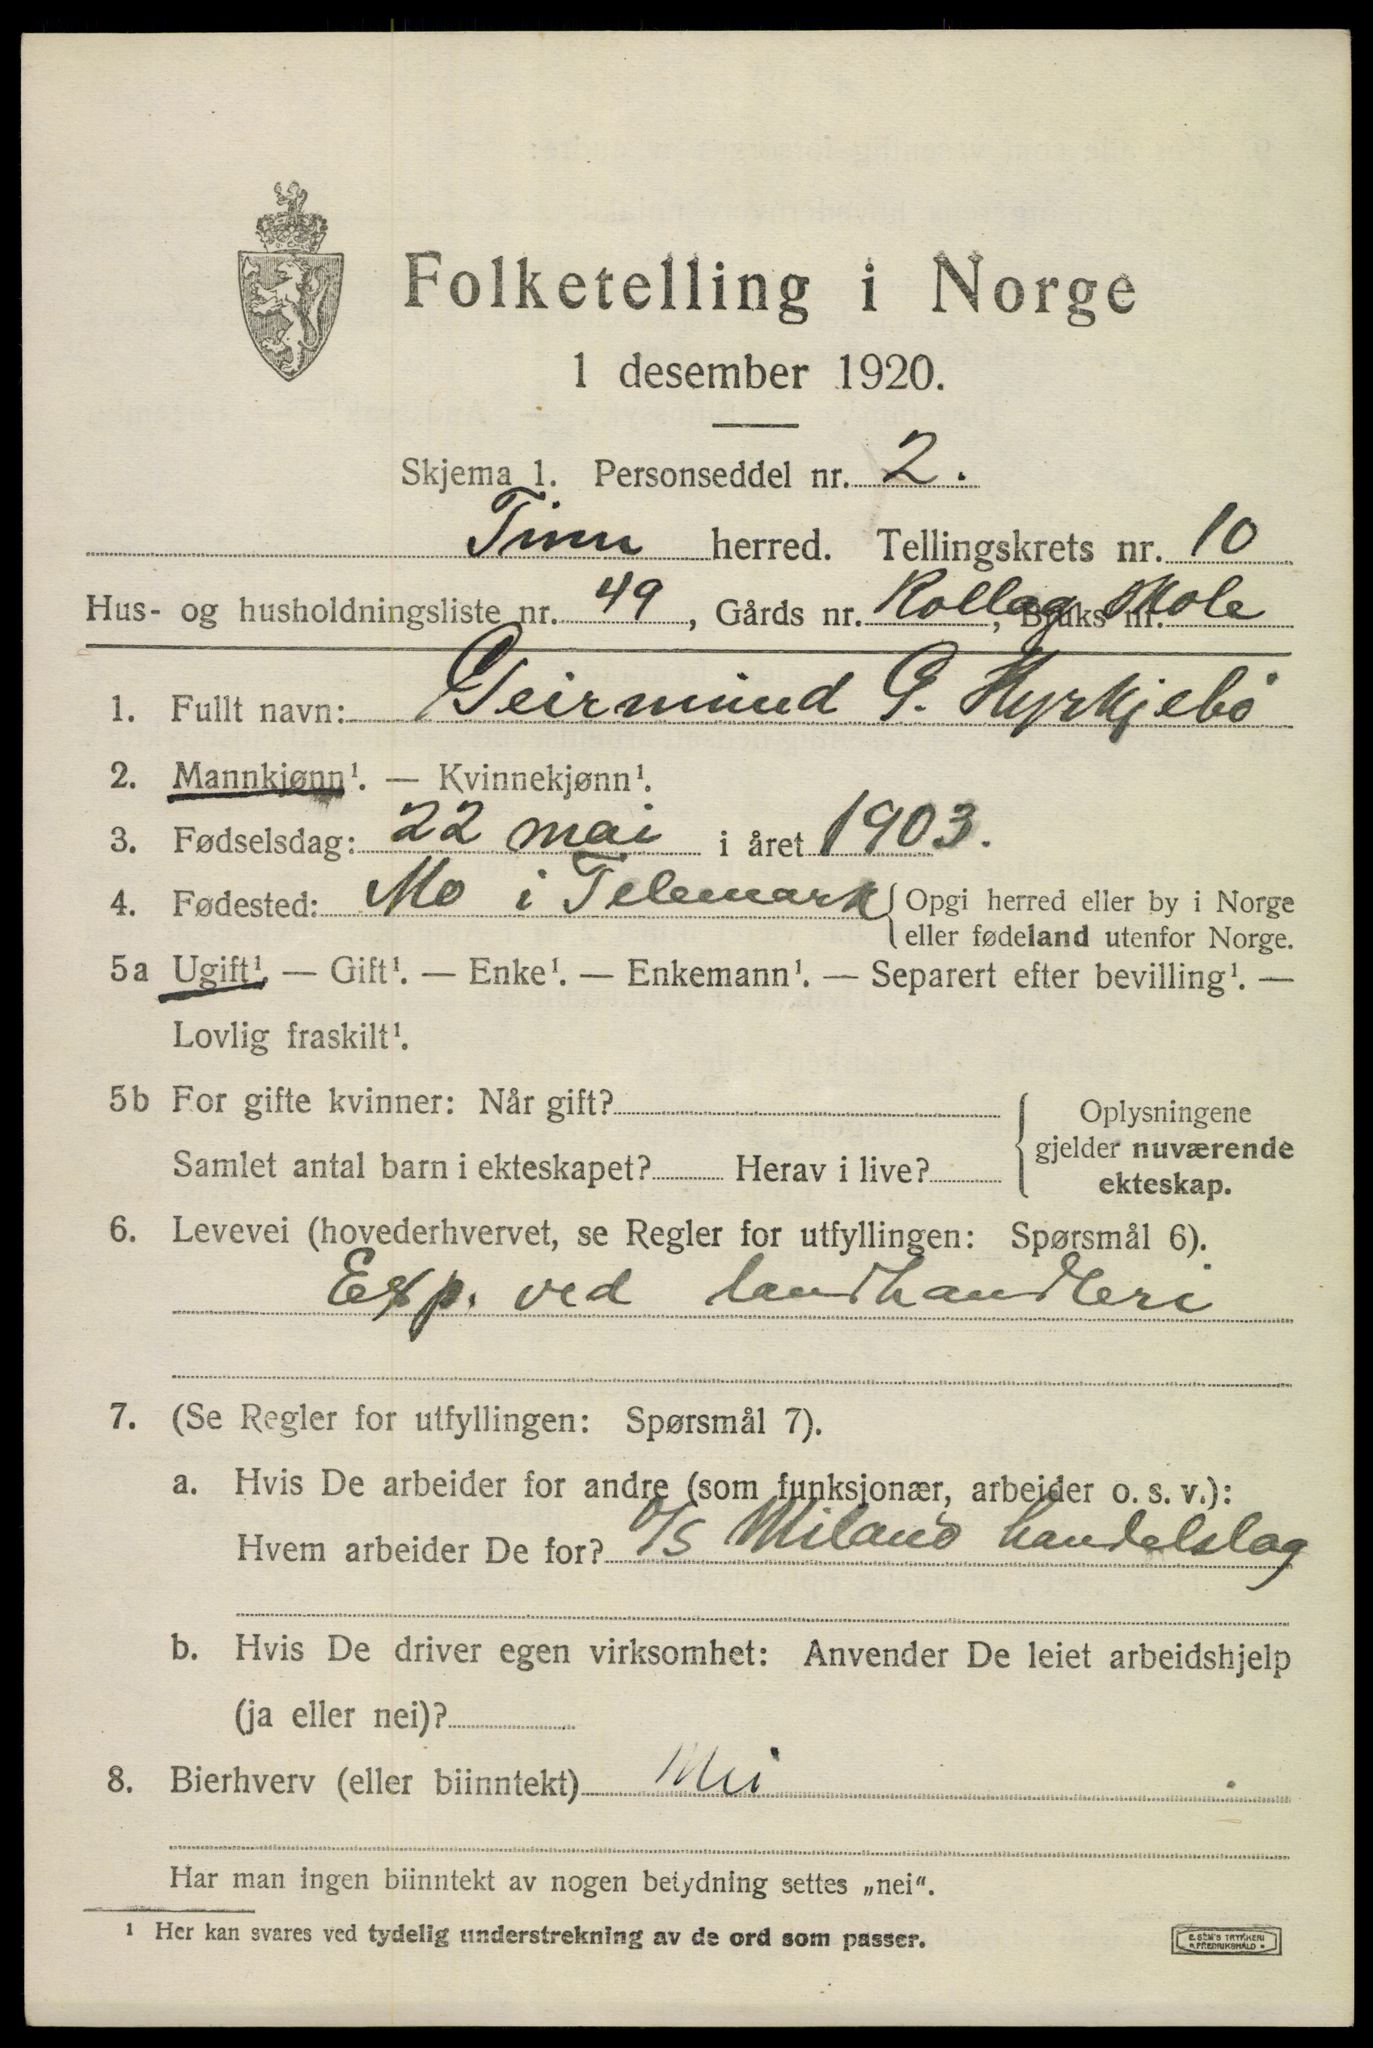 Folketelling i Norge
1 desember 1920.
Skjema 1. Personseddel nr. 2.
Tinn herred. Tellingskrets nr. 10
Hus- og husholdningsliste nr. 49, Gårds nr. Rollag, Bruks nr. Skole
1. Fullt navn: Geirmund G. Hyrkjebø
2. Mannkjønn¹. — Kvinnekjønn¹.
3. Fødselsdag: 22 mai i året 1903.
4. Fødested: Mo i Telemark { Opgi herred eller by i Norge
eller fødeland utenfor Norge.
5a Ugift¹. — Gift¹. — Enke¹. — Enkemann¹. — Separert efter bevilling¹. —
Lovlig fraskilt¹.
5b For gifte kvinner: Når gift?
Samlet antal barn i ekteskapet? Herav i live?
{ Oplysningene
gjelder nuværende
ekteskap.
6. Levevei (hovederhvervet, se Regler for utfyllingen: Spørsmål 6).
Exp. ved landhandleri
7. (Se Regler for utfyllingen: Spørsmål 7).
a. Hvis De arbeider for andre (som funksjonær, arbeider o. s. v.):
Hvem arbeider De for? Milano handelslag
b. Hvis De driver egen virksomhet: Anvender De leiet arbeidshjelp
(ja eller nei)?
8. Bierhverv (eller biinntekt) Nei
Har man ingen biinntekt av nogen betydning settes „nei“.
¹ Her kan svares ved tydelig understrekning av de ord som passer.
E. SEM'S TRYKKERI
FREDRIKSHALD